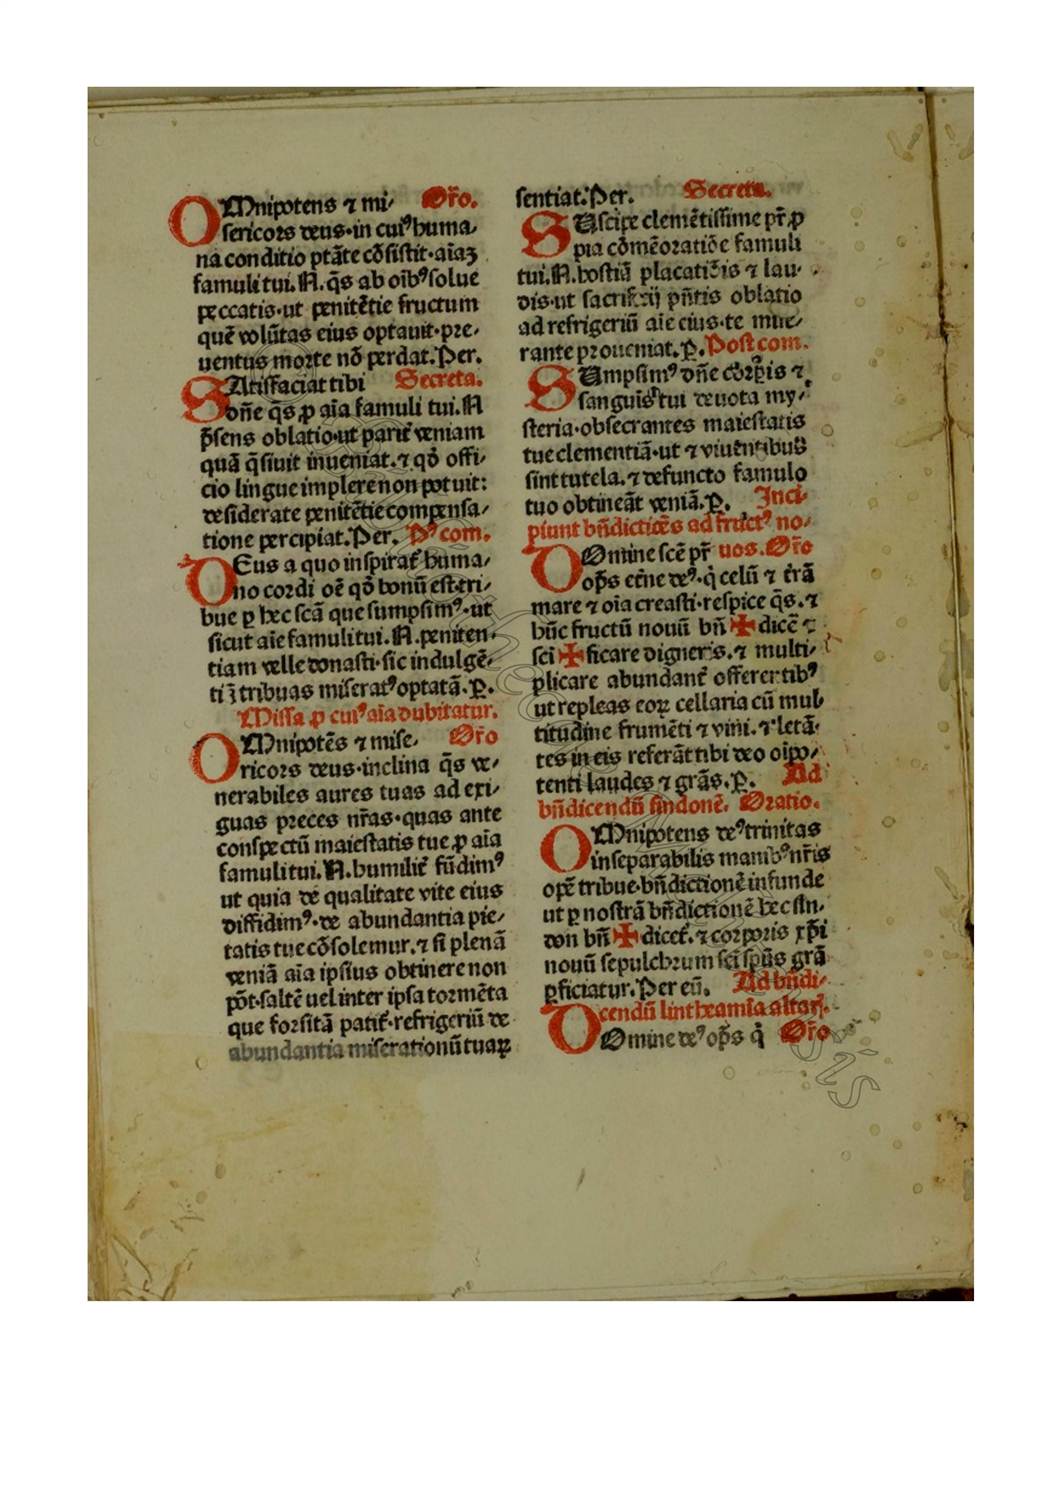 OMnipotens ⁊ mi⸗ Or̄o.
sericors deus·in cuiꝰ huma⸗
na conditio ptāte cōsistit·aīaʒ
famuli tui.N.q̄s ab oībꝰ solue
peccatis·ut penitētie fructum
quē volūtas eius optauit·pre⸗
uentus morte nō perdat.Per.
SAtisfaciat tibi Secreta.
dn̄e q̄s ꝓ aīa famuli tui.N
p̄sens oblatio·ut parit̄ veniam
quā q̄siuit inueniat.⁊ qd̄ offi⸗
cio lingue implere non potuit:
desiderate penitētie compensa⸗
tione percipiat.Per. Pꝰ com.
DEus a quo inspirat̄ huma⸗
no cordi oē qd̄ bonū est·tri⸗
bue ꝑ hec scā que sumpsimꝰ·ut
sicut aīe famuli tui.N.peniten⸗
tiam velle donasti·sic indulgē⸗
ti ̄ tribuas miseratꝰ optatā.ꝑ.
Missa ꝓ cuiꝰ aīa dubitatur.
OMnipotēs ⁊ mise⸗ Or̄o
ricors deus·inclina q̄s ve⸗
nerabiles aures tuas ad exi⸗
guas preces nr̄as·quas ante
conspectū maiestatis tue ꝓ aīa
famuli tui.N.humilit̄ fūdimꝰ
ut quia de qualitate vite eius
diffidimꝰ·de abundantia pie⸗
tatis tue cōsolemur.⁊ si plenā
veniā aīa ipsius obtinere non
pōt·saltē uel inter ipsa tormēta
que forsitā patit̄·refrigeriū de
abundantia miserationū tuaꝝ
sentiat.Per. Secreta.
SUscipe clemētissime pr̄ ꝓ
pia cōmēoratiōe famuli
tui.N.hostiā placatiōis ⁊ lau⸗
dis·ut sacrificij pn̄tis oblatio
ad refrigeriū aīe eius·te mise⸗
rante proueniat.ꝑ.Post com.
SUmpsimꝰ dn̄e corꝑis ⁊
sanguis tui deuota my⸗
steria·obsecrantes maiestatis
tue clementiā·ut ⁊ viuentibus
sint tutela.⁊ defuncto famulo
tuo obtineāt veniā.ꝑ. Inci⸗
piunt bn̄dictiōes ad fructꝰ no⸗
DOmine scē pr̄ uos.Or̄o
op̄s etn̄e deꝰ·q̇ celū ⁊ t̄rā
mare ⁊ oīa creasti·respice q̄s.⁊
hūc fructū nouū bn̄ ✠ dicē ⁊
sci ✠ ficare digneris.⁊ multi⸗
plicare abundant̄ offerentibꝰ
ut repleas eoꝝ cellaria cū mul⸗
titudine frumēti ⁊ vini.⁊ letā⸗
tes in eis referāt tibi deo oīpo⸗
tenti laudes ⁊ grās.ꝑ. Ad
bn̄dicendū sindonē. Oratio.
OMnipotens deꝰ trinitas
inseparabilis manibꝰ nr̄is
opē tribue·bn̄dictionē infunde
ut ꝑ nostrā bn̄dictionē hec sin⸗
don bn̄ ✠ dicet̄.⁊ corporis xp̄i
nouū sepulchrum sci sp̄us grā
ꝑficiatur.Per eū. Ad bn̄di⸗
cendū lintheamīa altarꝭ.
DOmine deꝰ op̄s q̇ Or̄o